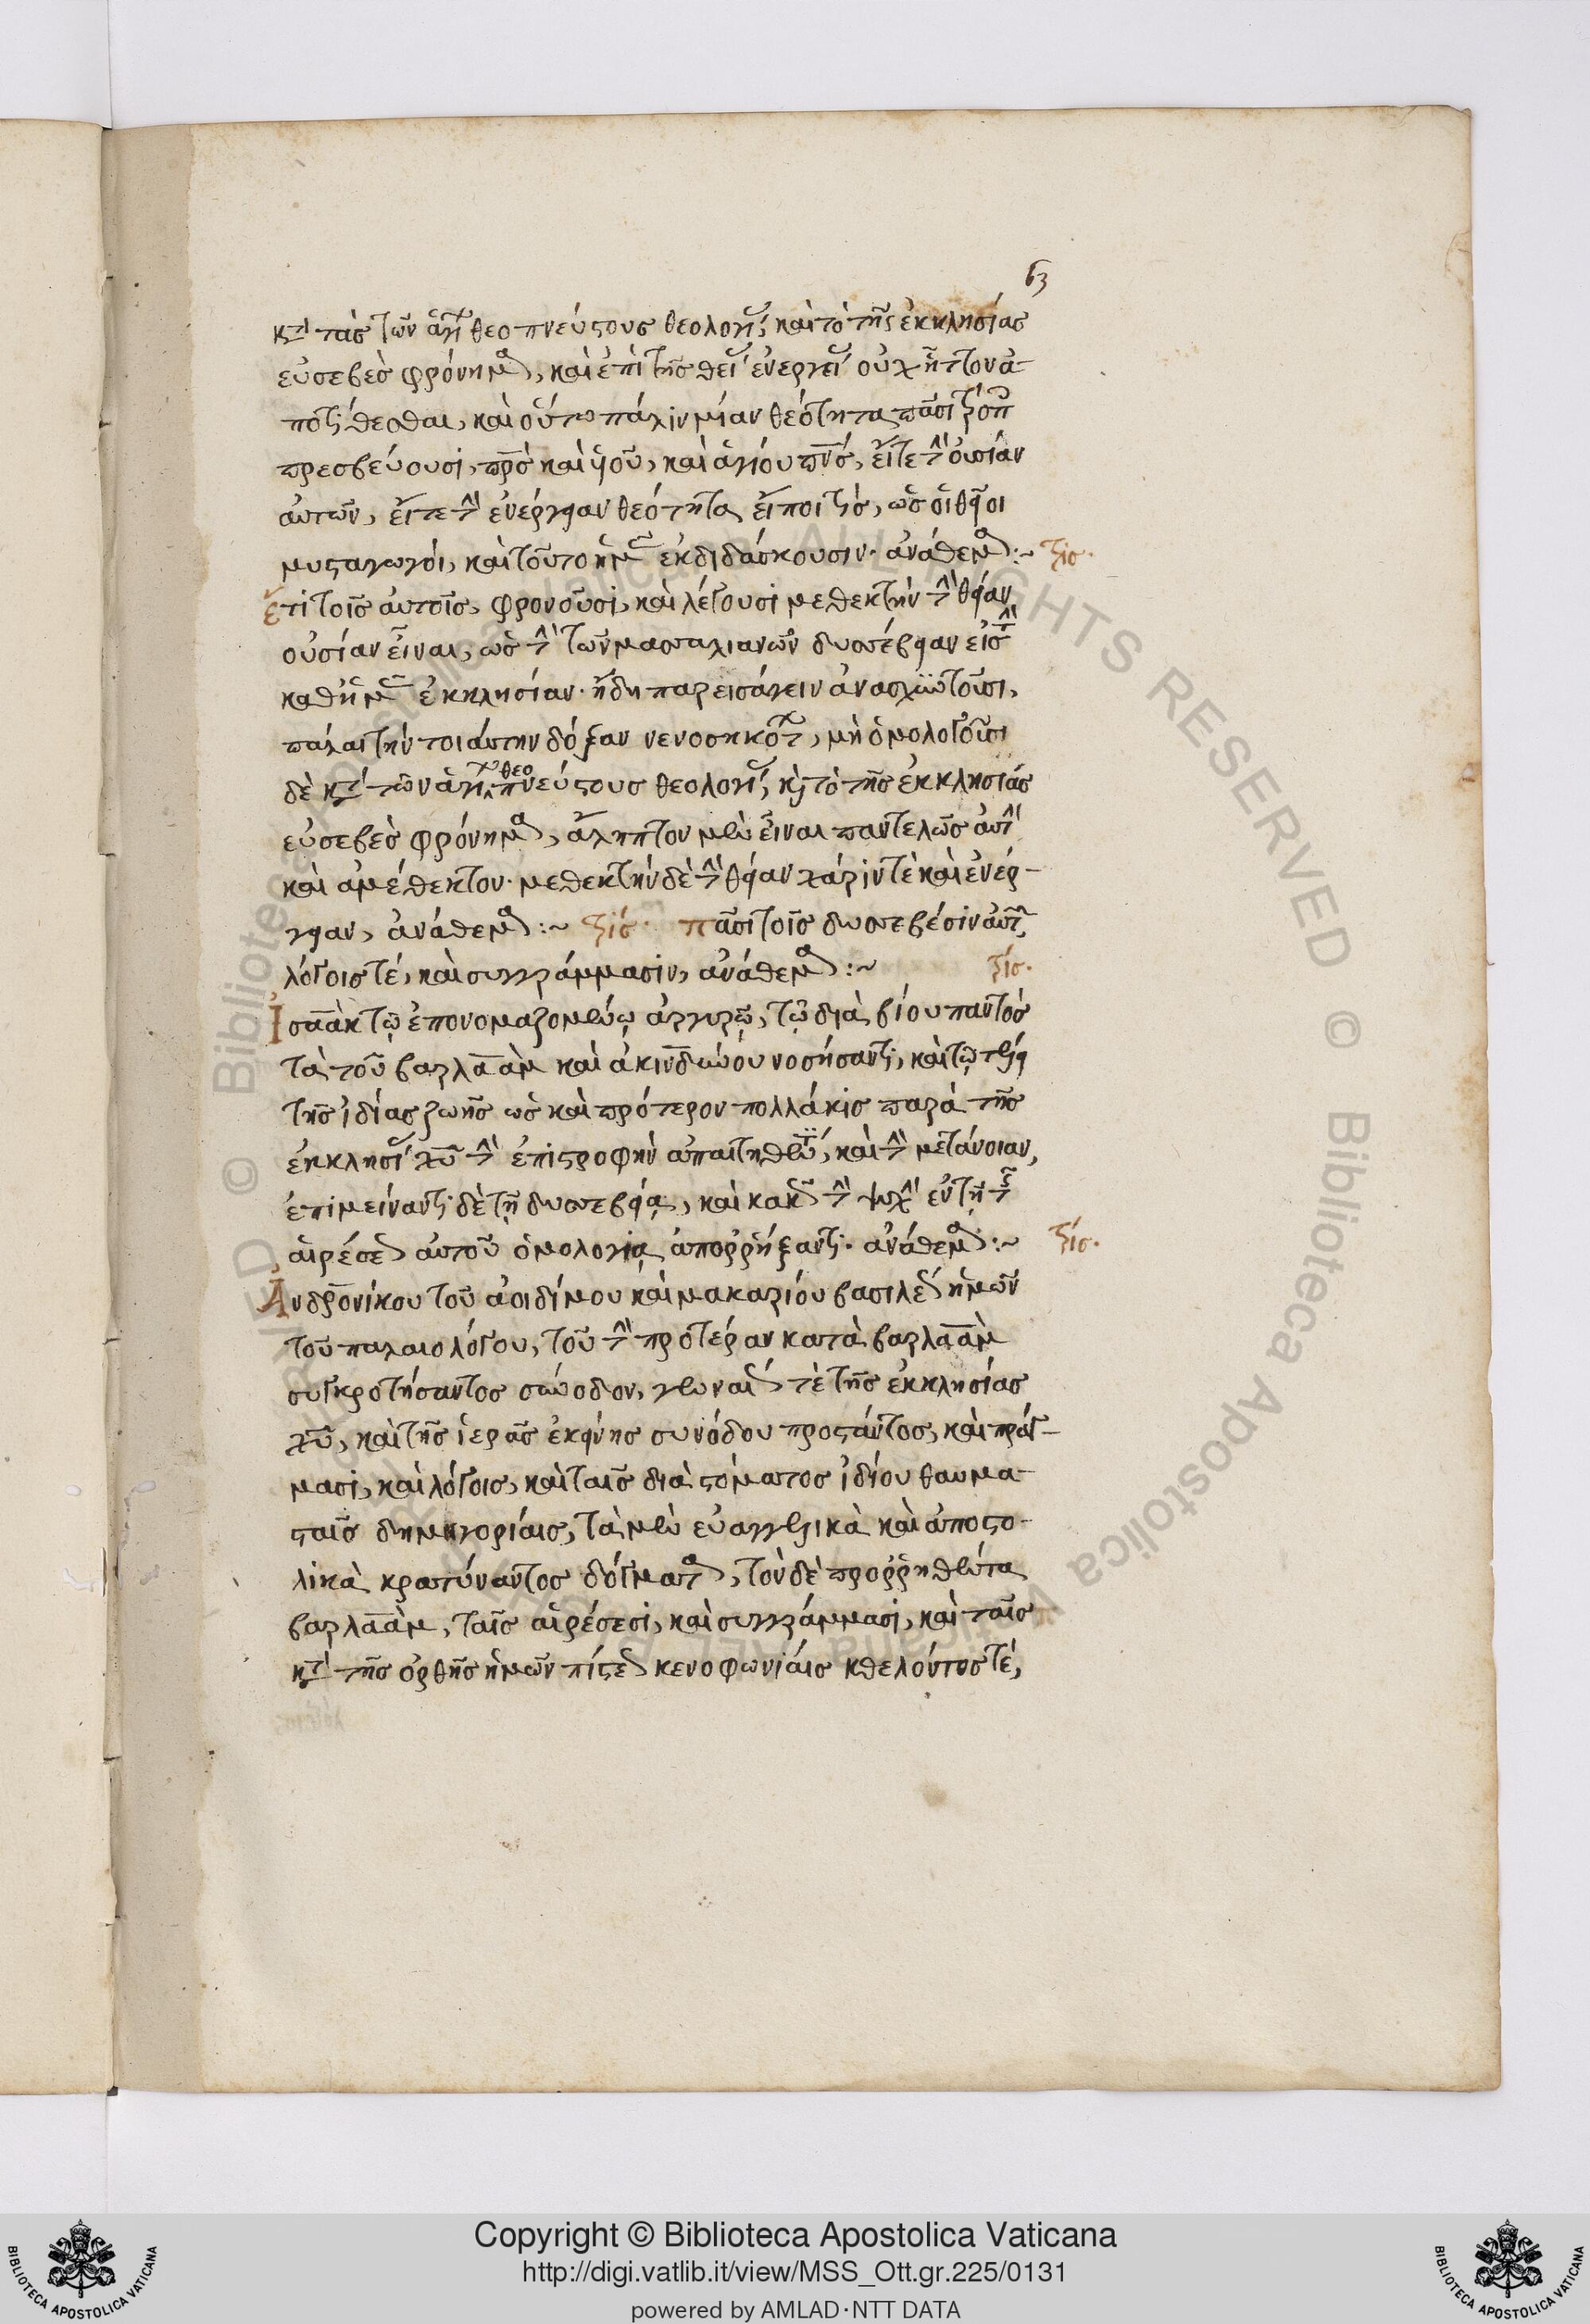 63
κατὰ τὰς τῶν ἁγίων θεοπνεύστους θεολογίας, καὶ τὸ τῆς ἐκκλησίας
εὐσεβὲς φρόνημα, καὶ ἐπὶ τῆς θείας ἐνεργείας οὐχ ἧττον ἀ-
ποτίθεσθαι, καὶ οὕτω πάλιν μίαν θεότητα πᾶσι τρόποις
πρεσβεύουσι, πρς καὶ υἱοῦ, καὶ ἁγίου πνς, εἴτε τὴν οὐσίαν
αὐτῶν, εἴτε τὴν ἐνέργειαν θεότητα εἴποι τὶς, ὡς οἱ θεῖοι
μυσταγωγοί, καὶ τοῦτο ἡμᾶς ἐκδιδάσκουσιν· ἀνάθεμα :~ τρίς·
ἔτι τοῖς αὐτοῖς, φρονοῦσι, καὶ λέγουσι μεθεκτὴν τὴν θείαν
οὐσίαν εἶναι, ὡς τὴν τῶν μασσαλιανῶν δυσσέβειαν εἰς τὴν
καθ' ἡμᾶς ἐκκλησίαν· ἤδη παρεισάγειν ἀναισχυντοῦσι,
πάλαι τὴν τοιαύτην δόξαν νενοσηκότων, μὴ ὁμολογοῦσι
δὲ κατὰ τῶν ἁγίων θεοπνεύστους θεολογίας, καὶ τὸ τῆς ἐκκλησίας
εὐσεβὲς φρόνημα, ἄληπτον μὲν εἶναι παντελῶς αὐτὴν
καὶ ἀμέθεκτον· μεθεκτὴν δὲ τὴν θείαν χάριν τὲ καὶ ἐνέρ-
γειαν, ἀνάθεμα :~ τρίς· πᾶσι τοῖς δυσσεβέσιν αὐτῶν
λόγοις τέ, καὶ συγγράμμασιν, ἀνάθεμα :~ τρίς·
Ἰσαὰκ τῷ ἐπονομαζομένῳ ἀργυρῷ, τῷ διὰ βίου παντὸς
τὰ τοῦ βαρλαὰμ καὶ ἀκινδύνου νοσήσαντι, καὶ τῷ τέλει
τῆς ἰδίας ζωῆς ὡς καὶ πρότερον πολλάκις παρὰ τῆς
ἐκκλησίας χῦ τὴν ἐπιστροφὴν ἀπαιτηθέντι, καὶ τὴν μετάνοιαν,
ἐπιμείναντι δὲ τῇ δυσσεβείᾳ, καὶ κακῶς τὴν ψυχὴν ἐν τῇ τῆς
αἱρέσεως αὐτοῦ ὁμολογίᾳ ἀπορρήξαντι· ἀνάθεμα :~ τρίς·
Ἀνδρονίκου τοῦ ἀοιδίμου καὶ μακαρίου βασιλέως ἡμῶν
τοῦ παλαιολόγου, τοῦ τὴν προτέραν κατὰ βαρλαὰμ
συγκροτήσαντος σύνοδον, γενναίως τὲ τῆς ἐκκλησίας
χῦ, καὶ τῆς ἱερᾶς ἐκείνης συνόδου προστάντος, καὶ πράγ-
μασι, καὶ λόγοις, καὶ ταῖς διὰ στόματος ἰδίου θαυμα-
σταῖς δημηγορίαις, τὰ μὲν εὐαγγελικὰ καὶ ἀποστο-
λικὰ κρατύναντος δόγματα, τὸν δὲ προρρηθέντα
βαρλαὰμ, ταῖς αἱρέσεσι, καὶ συγγράμμασι, καὶ ταῖς
κατὰ τῆς ὀρθῆς ἡμῶν πίστεως κενοφωνίαις καθελόντος τέ,
Copyright © Biblioteca Apostolica Vaticana
http://digi.vatlib.it/view/MSS_Ott.gr.225/0131
powered by AMLAD·NTT DATA